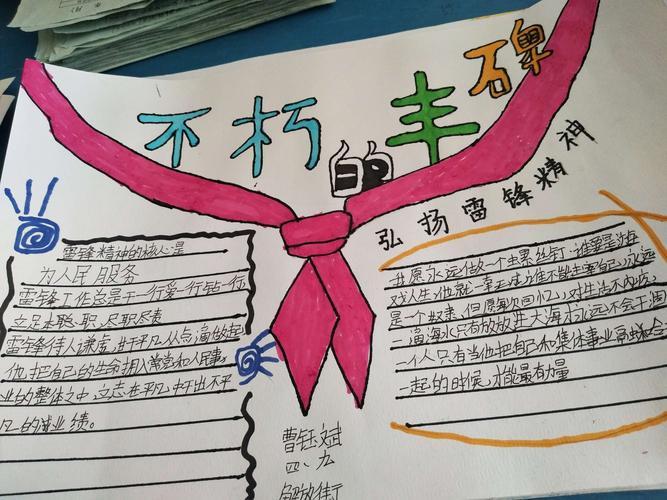 不朽的丰碑
弘扬雷锋精神
雷锋精神的核心是
为人民服务
雷锋工作总是干一行爱一行钻一行
立足本职、尽职尽责
雷锋待人谦虚,出于平凡,从点滴做起
他把自己的生命拥入常党和人民事
业的整体之中,立志在平凡中干出不平
凡的诚业绩。
我愿永远做一个螺丝钉。谁要是游
戏人生,他就一事无成,谁不能主宰自己,永远
是一个奴隶。但愿每次回忆,对生活不内疚,
一滴海水只有放放进大海才永远不会干涸
一个人只有当他把自己和集体事业融合
一起的时候,才能最有力量
曹钰斌
四、九
解放街